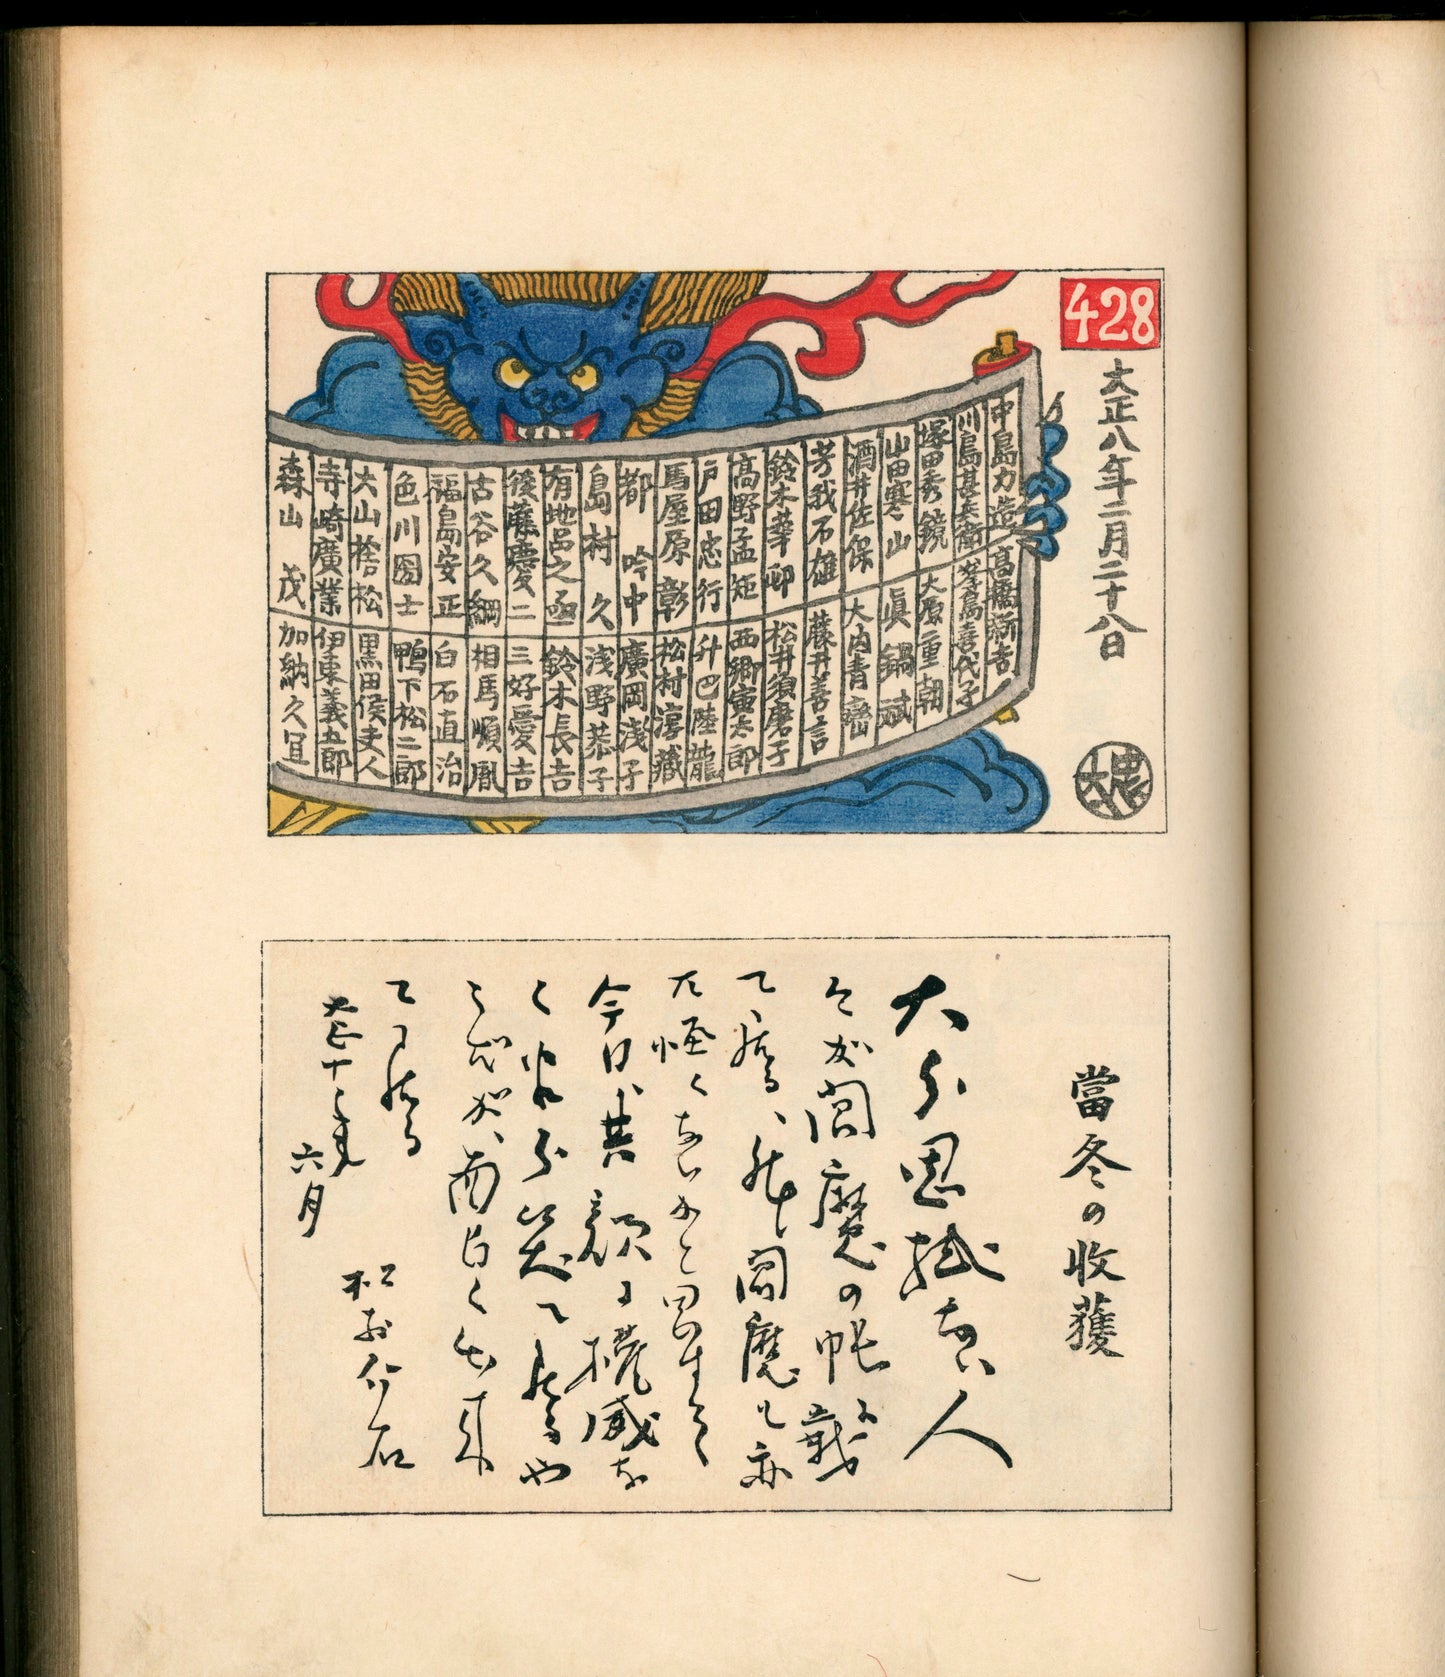 428
大正八年二月二十八日
中島力造
川島甚兵衛
塚田秀鏡
山田寒山
酒井佐保
芳我石雄
鈴木華邨
高野孟矩
戸田忠行
馬屋原彰
都 吟中
島村 久
有地品之
後藤慶二
古谷久綱
福島安正
色川圀士
大山捨松
寺崎廣業
森山 茂
高橋新吉
峯島喜代子
大原重朝
眞鍋斌
大内青巒
藤井善言
松井須磨子
西郷寅太郎
升巴陸龍
松村淳藏
廣岡淺子
浅野恭子
鈴木長吉
三好愛吉
相馬順胤
白石直治
鴨下松二郎
黒田侯夫人
伊東義五郎
加納久宜
當冬の收獲
大分思掛ない人
々が閻魔の帳に載
て居る、然し閻魔も亦
怖くないかと思
今日は其顔に権威な
く半分笑て居るや
うだが、面白く出来
て居る
大正十二年
六月
介石